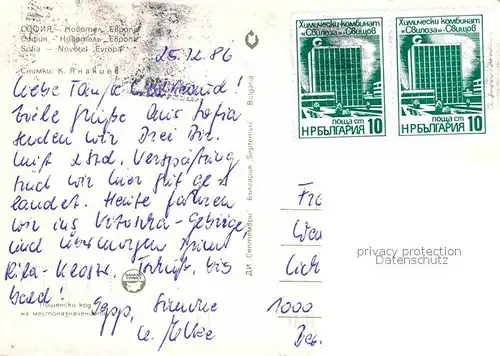 СОФИЯ – Новотел „Европа“
София – Новотель „Европа“
Sofia – Novotel „Europa“
Снимки: К. Янакиев
25.12.86
Liebe Tante
Viele Grüße aus Sofia
senden wir Drei Dir.
Mit 2 Std. Verspätung
sind wir hier gut ge-
landet. Heute fahren
wir ins Vitoscha-Gebirge
und übermorgen zum
Rila-Kloster. Tschüß, bis
bald!
Пощенски код
на местоназначението
ДИ Септември България Septemvri Bulgaria
Химически комбинат
«Свилоза»-Свищов
поща ст
НР БЪЛГАРИЯ 10
Химически комбинат
«Свилоза»-Свищов
поща ст
НР БЪЛГАРИЯ 10
1000
privacy protection
Datenschutz